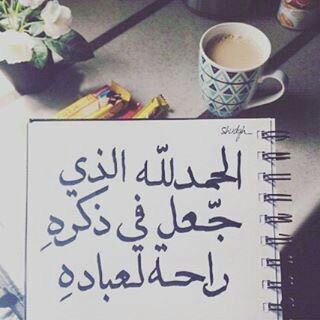 الحمدلله الذي
جعل في ذكرهِ
راحة لعبادهِ